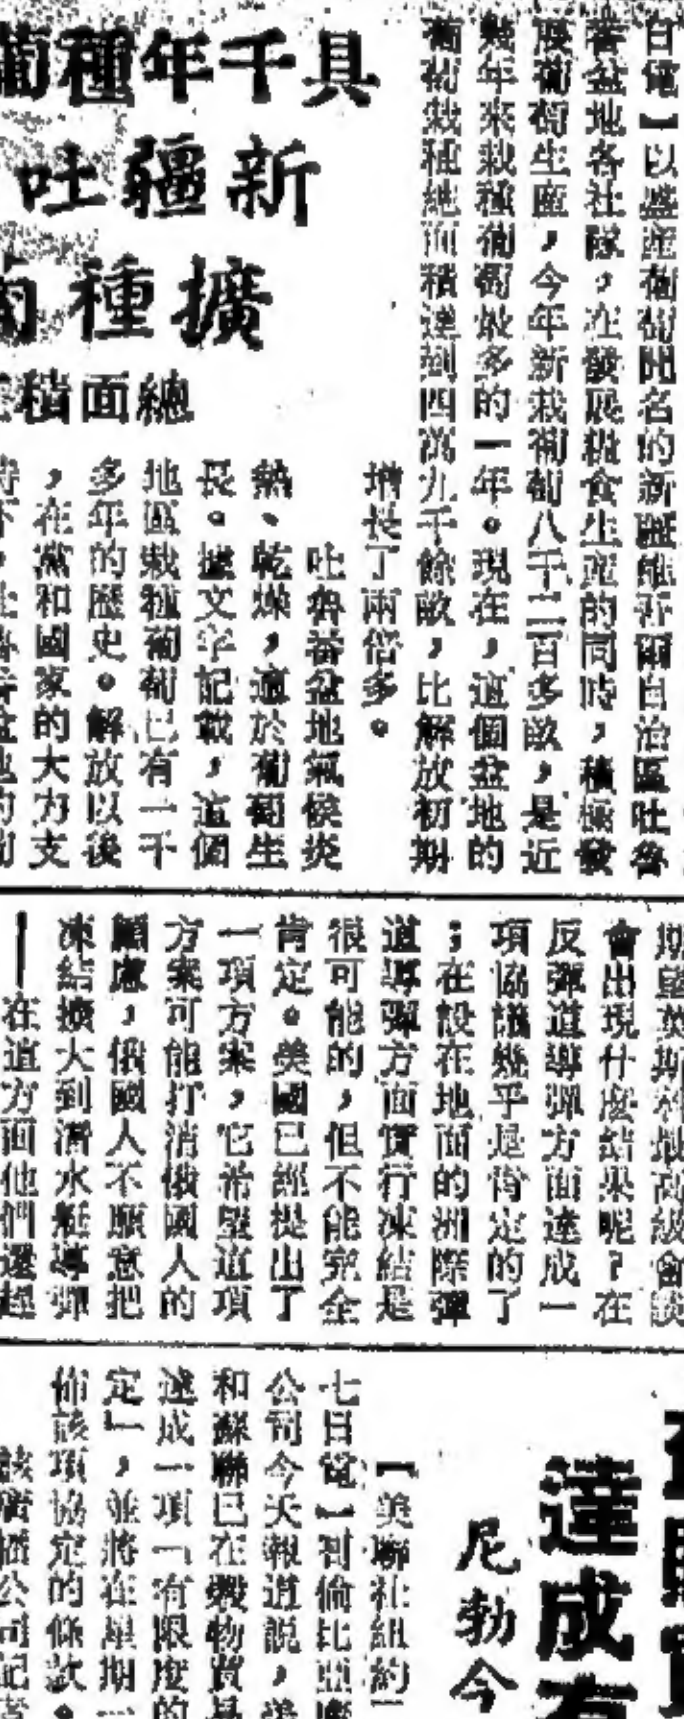 具千年種葡
新疆吐
擴種葡
總面積
白電】以盛産葡萄聞名的新疆維吾爾自治區吐魯
番盆地各社隊，在發展糧食生産的同時，積極發
展葡萄生産，今年新栽葡萄八千二百多畝，是近
幾年來栽種葡萄最多的一年。現在，這個盆地的
葡萄栽種總面積達到四萬九千餘畝，比解放初期
增長了兩倍多。
吐魯番盆地氣候炎
熱、乾燥，適於葡萄生
長。據文字記載，這個
地區栽種葡萄已有一千
多年的歷史。解放以後
，在黨和國家的大力支
持下，吐魯番盆地的葡
期望莫斯科最高級會談
會出現什麼結果呢？在
反彈道導彈方面達成一
項協議幾乎是肯定的了
；在設在地面的洲際彈
道導彈方面實行凍結是
很可能的，但不能完全
肯定。美國已經提出了
一項方案，它希望這項
方案可能打消俄國人的
顧慮，俄國人不願意把
凍結擴大到潛水艇導彈
——在這方面他們還趕
達成有
尼勃今
【美聯社紐約一
七日電】哥倫比亞廣
公司今天報道説，美
和蘇聯已在穀物貿易
達成一項「有限度的
定」，並將在星期一
佈該項協定的條款。
該廣播公司記者